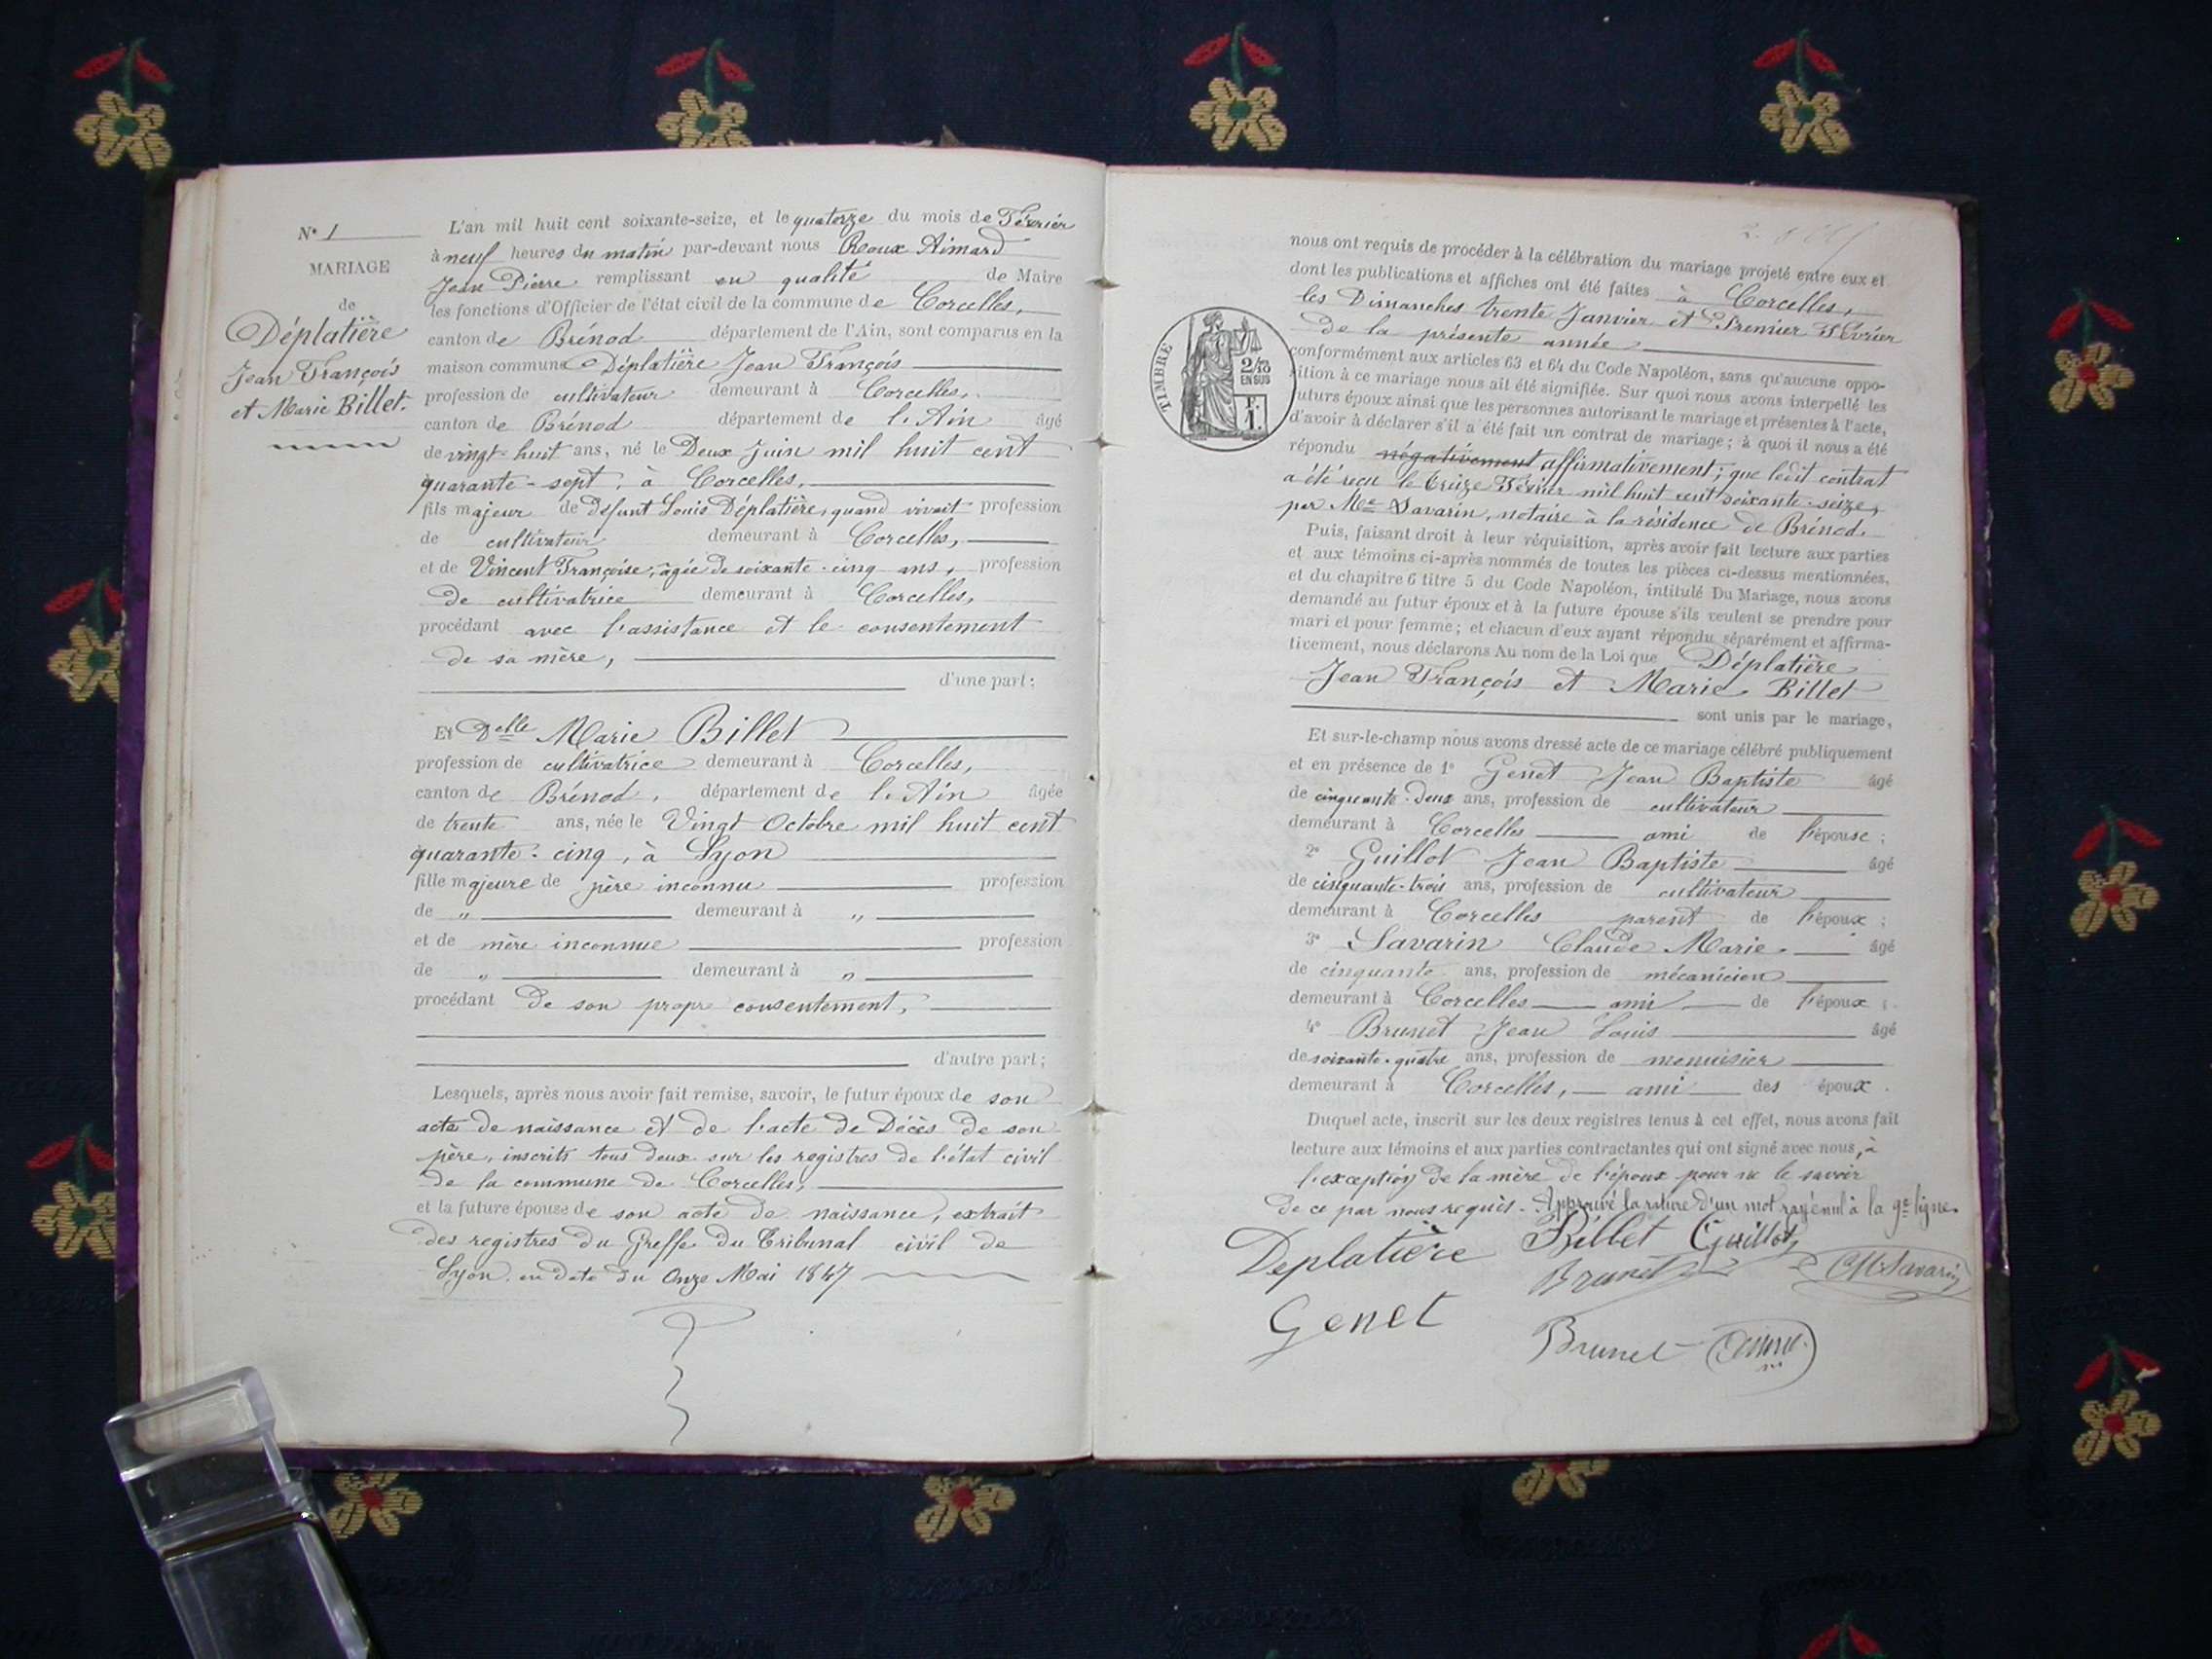 N° 1
MARIAGE
de
Déplatière
Jean François
et Marie Billet.
L'an mil huit cent soixante-seize, et le quatorze du mois de Février
à neuf heures du matin par-devant nous Roux Aimard
Jean Pierre remplissant en qualité de Maire
les fonctions d'Officier de l'état civil de la commune de Corcelles,
canton de Brénod département de l'Ain, sont comparus en la
maison commune Déplatière Jean François
profession de cultivateur demeurant à Corcelles,
canton de Brénod département de l'Ain âgé
de vingt-huit ans, né le Deux Juin mil huit cent
quarante-sept, à Corcelles,
fils majeur de défunt Louis Déplatière, quand vivait profession
de cultivateur demeurant à Corcelles,
et de Vincent Françoise, âgée de soixante-cinq ans, profession
de cultivatrice demeurant à Corcelles,
procédant avec l'assistance et le consentement
de sa mère,
d'une part;
Et Delle Marie Billet
profession de cultivatrice demeurant à Corcelles,
canton de Brénod, département de l'Ain âgée
de trente ans, née le Vingt Octobre mil huit cent
quarante-cinq, à Lyon
fille majeure de père inconnu profession
de " demeurant à "
et de mère inconnue profession
de " demeurant à "
procédant de son propre consentement,
d'autre part;
Lesquels, après nous avoir fait remise, savoir, le futur époux de son
acte de naissance et de l'acte de Décès de son
père, inscrits tous deux sur les registres de l'état civil
de la commune de Corcelles,
et la future épouse de son acte de naissance, extrait
des registres du Greffe du Tribunal civil de
Lyon en date du Onze Mai 1847
nous ont requis de procéder à la célébration du mariage projeté entre eux et
dont les publications et affiches ont été faites à Corcelles,
les Dimanches trente Janvier et Premier Février
de la présente année
TIMBRE
2/10
EN SUS
F.
1.
conformément aux articles 63 et 64 du Code Napoléon, sans qu'aucune oppo-
sition à ce mariage nous ait été signifiée. Sur quoi nous avons interpellé les
futurs époux ainsi que les personnes autorisant le mariage et présentes à l'acte,
d'avoir à déclarer s'il a été fait un contrat de mariage; à quoi il nous a été
répondu négativement affirmativement; que ledit contrat
a été reçu le treize Février mil huit cent soixante-seize,
par Me Savarin, notaire à la résidence de Brénod.
Puis, faisant droit à leur réquisition, après avoir fait lecture aux parties
et aux témoins ci-après nommés de toutes les pièces ci-dessus mentionnées,
et du chapitre 6 titre 5 du Code Napoléon, intitulé Du Mariage, nous avons
demandé au futur époux et à la future épouse s'ils veulent se prendre pour
mari et pour femme; et chacun d'eux ayant répondu séparément et affirma-
tivement, nous déclarons Au nom de la Loi que Déplatière
Jean François et Marie Billet
sont unis par le mariage,
Et sur-le-champ nous avons dressé acte de ce mariage célébré publiquement
et en présence de 1° Genet Jean Baptiste âgé
de cinquante-deux ans, profession de cultivateur
demeurant à Corcelles ami de l'épouse;
2° Guillot Jean Baptiste âgé
de cinquante-trois ans, profession de cultivateur
demeurant à Corcelles parent de l'époux;
3° Savarin Claude Marie âgé
de cinquante ans, profession de mécanicien
demeurant à Corcelles ami de l'époux;
4° Brunet Jean Louis âgé
de soixante-quatre ans, profession de menuisier
demeurant à Corcelles, ami des époux.
Duquel acte, inscrit sur les deux registres tenus à cet effet, nous avons fait
lecture aux témoins et aux parties contractantes qui ont signé avec nous, à
l'exception de la mère de l'époux pour ne le savoir
de ce par nous requis. Approuvé la rature d'un mot rayé nul à la 9e ligne.
Deplatière Billet Guillot
Brunet CM Savarin
Genet
Brunet